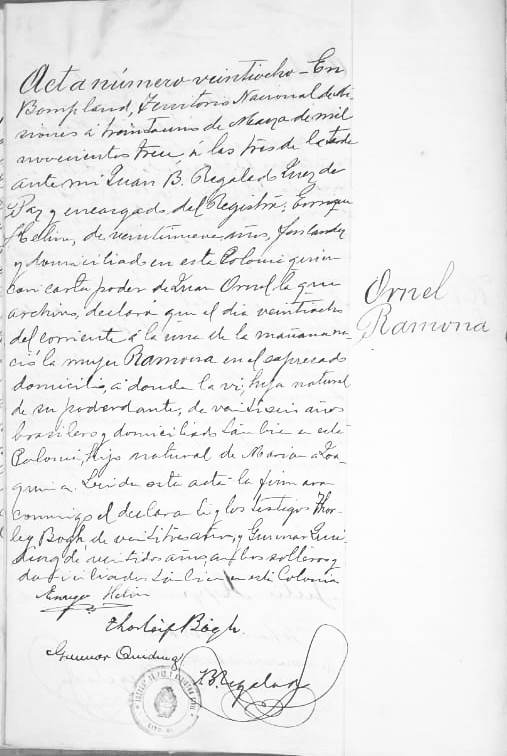 Acta número veintiocho - En
Bompland, Territorio Nacional de Mi-
siones á treinta uno de Marzo de mil
novecientos trece, á las tres de la tarde
ante mi Juan B. Regalado Juez de
Paz y encargado del Registro, Enrique
Helin, de veintinueve años,
y domiciliado en esta Colonia quien
con carta poder de Juan Ornel la que
archivo, declaró que el dia veintiocho
del corriente á la una de la mañana na-
ció la mujer Ramona en el expresado
domicilio, a donde la vi, hija natural
de su poderdante, de veintiseis años
brasilero y domiciliado tambien en esta
Colonia, hijo natural de Maria Joa-
quina. Leida esta acta la firmaron
conmigo el declarante y los testigos Thor-
leif Bögh de veintitres años, y Gunnar Quid-
ding de veintidos años, ambos solteros y
domiciliados tambien en esta Colonia
Enrique Helin
Thorleif Bögh.
Gunnar Quiding
JB Regalado
Ornel
Ramona